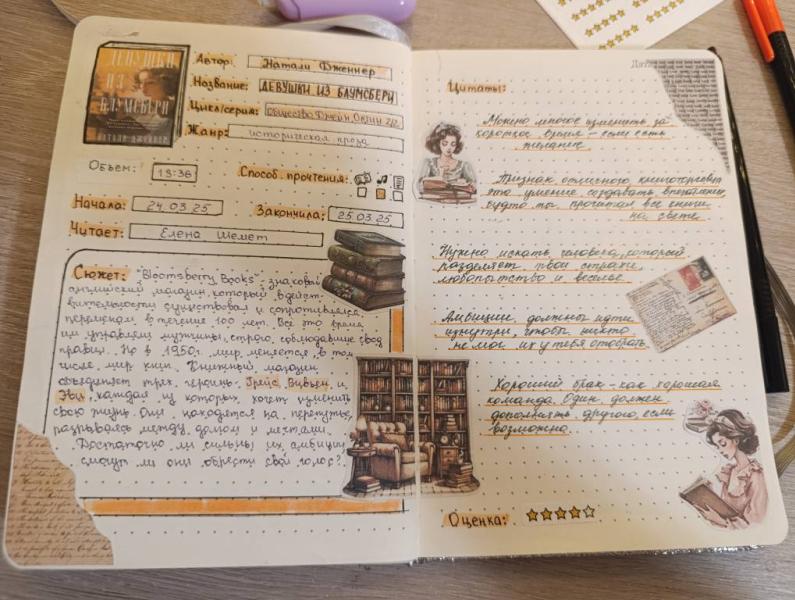 ДЕВУШКИ
ИЗ
БЛУМСБЕРИ
НАТАЛИ ДЖЕННЕР
Автор: Натали Дженнер
Название: ДЕВУШКИ ИЗ БЛУМСБЕРИ
Цикл/серия: Общество Джейн Остин 2/2
Жанр: историческая проза
Объем: 13:36
Способ прочтения:
Начала: 24.03.25
Закончила: 25.03.25
Читает: Елена Шемет
Сюжет: "Bloomsberry Books", знаковый
английский магазин, который в дейст-
вительности существовал и сопротивлялся
переменам в течение 100 лет. Все это время
им управляли мужчины, строго соблюдавшие свод
правил. Но в 1950г. мир меняется, в том
числе мир книг. Книжный магазин
объединяет трех героинь: Грейс, Вивьен и
Эви, каждая из которых хочет изменить
свою жизнь. Они находятся на перепутье,
разрываясь между долгом и мечтами.
Достаточно ли сильны их амбиции
смогут ли они обрести свой голос?
Цитаты:
Можно многое изменить за
короткое время – если есть
желание.
Признак отличного книготорговца
это умение создавать впечатление,
будто ты прочитал все книги
на свете.
Нужно искать человека, который
разделяет твои страхи,
любопытство и веселье.
Амбиции должны идти
изнутри, чтобы никто
не мог их у тебя отобрать.
Хороший брак – как хорошая
команда. Один должен
дополнять другого, если
возможно.
Оценка: